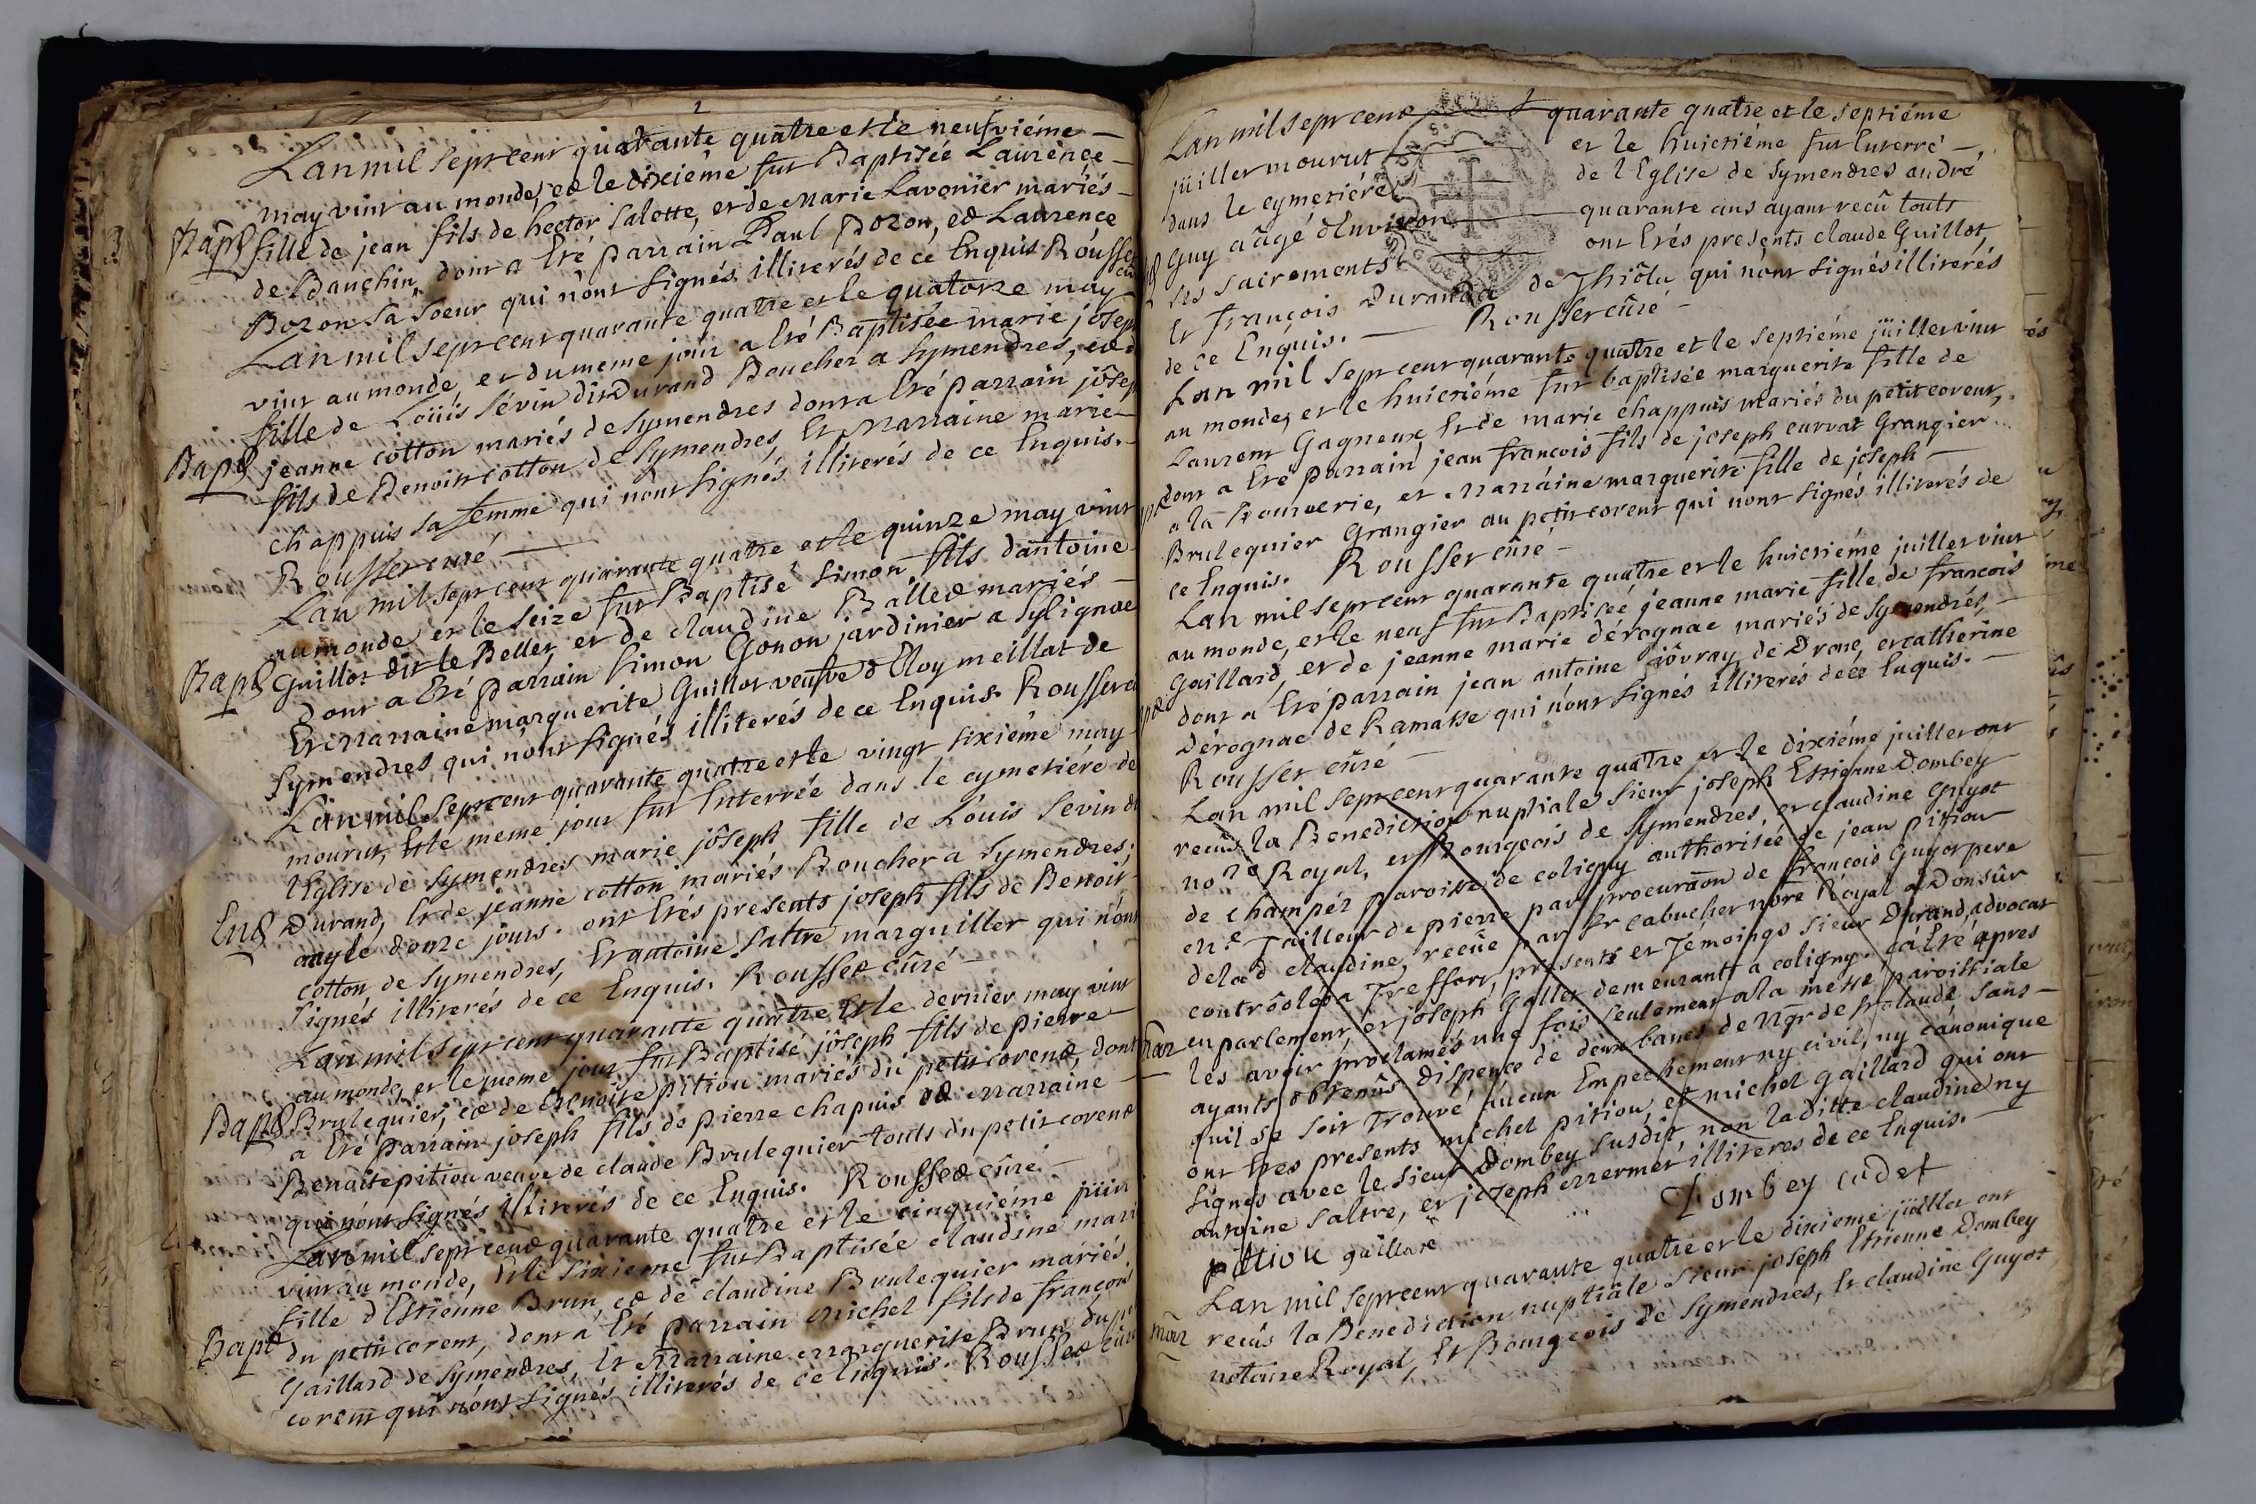 Lan mil sept cent quarante quatre et le neufviéme
may vint au monde, et le dixiéme fut Baptisée Laurence
Bapt fille de jean fils de hector Salotte, et de Marie Lavenier mariés
de Bauchin, dont a Eté parrain Paul Bozon, et Laurence
Bozon sa soeur qui n'ont signés illiterés de ce Enquis Rousset
Lan mil sept cent quarante quatre et le quatorze may
vint au monde et du meme jour a Eté Baptisée marie joseph
fille de Loüis Sévin dit Durand Boucher a Symendres, et
Bapt jeanne cotton mariés de Symendres dont a Eté parrain joseph
fils de Benoit cotton de Symendres Et Marraine marie
chappuis sa femme qui n'ont signés illiterés de ce Enquis.
Rousset curé
Lan mil sept cent quarante quatre et le quinze may vint
au monde et le seize fut Baptisé Simon fils dantoine
Bapt Guillot dit le Bellet et de claudine Ballet mariés
Dont a Eté parrain Simon Gonon jardinier a Syligna
Et Marraine marguerite Guillot veufve dEloy meillat de
Symendres qui n'ont signés illiterés de ce Enquis. Rousset
Lan mil sept cent quarante quatre et le vingt sixiéme may
mourut, Et le meme jour fut Enterrée dans le cymetiére de
lEglise de Symendres marie joseph fille de Louis Sevin dit
Durand, Et de jeanne cotton mariés Boucher a Symendres.
Ent aagée donze jours. ont Etés presents joseph fils de Benoit
cotton de Symendres, Et antoine Saltre marguiller qui n'ont
signés illiterés de ce Enquis. Rousset curé
Lan mil sept cent quarante quatre Et le dernier may vint
au monde, et le meme jour fut Baptisé joseph fils de pierre
Bapt Brulequier, et de Benoite pitiou mariés du petit corent, dont
a Eté parrain joseph fils de pierre chapuis et marraine
Benoite pitiou veuve de claude Brulequier touts du petit corent
qui n'ont signés illiterés de ce Enquis. Rousset curé
Lan mil sept cent quarante quatre et le cinquiéme juin
vint au monde, Et le sixieme fut Baptisée claudine mari
fille dEstienne Brun et de claudine Brulequier mariés
Bapt du petit corent, dont a Eté parrain michel fils de francois
Gaillard de Symendres, Et Marraine marguerite Brun du
corent qui n'ont signés illiterés de ce Enquis. Rousset curé
Lan mil sept cent quarante quatre et le septiéme
juillet mourut et le huictiéme fut Enterré
dans le cymetiére de lEglise de Symendres andré
Guy aâgé dEnviron quarante ans ayant recû touts
ses sacrements ont Etés presents claude Guillot
Et françois Durand de Thiôla qui n'ont signés illiterés
de ce Enquis. Rousset curé
Lan mil sept cent quarante quatre et le septiéme juillet vint
au monde, et le huictiéme fut baptisée marguerite fille de
Laurent Gagneux Et de marie chappuis mariés du petit corent,
dont a Eté parrain jean francois fils de joseph curvat Grangier
a la Bouverie, et Marráine marguerite fille de joseph
Brulequier Grangier au petit corent qui n'ont signés illiterés de
ce Enquis. Rousset curé
Lan mil sept cent quarante quatre et le huictiéme juillet vint
au monde, et le neuf fut Baptisée jeanne marie fille de francois
Gaillard, et de jeanne marie dérognat mariés de Symendres,
dont a Eté parrain jean antoine jôvray de Drom, et catherine
Dérognac de Ramasse qui n'ont signés illiterés de ce Enquis.
Rousset curé
Lan mil sept cent quarante quatre et le dixiéme juillet ont
recûs la Benediction nuptiale Sieur joseph Estienne Dombey
nore Royal, et Bourgeois de Symendres, et claudine Guyot
de champéz paroisse de coligny authorisée de jean pitiou
Tailleur de pierre par procuraôn de francois Guyot pere
de lad claudine, recüe par Sr cabuchet nôre Royal a Donsûr
contrôolée a Treffort, presents et Témoings Sieur Durand, advocat
mar en parlement, et joseph Gallet demeurant a coligny. ça Eté apres
les avoir proclamés une fois seulement a la messe paroissiale
ayants obtenûs dispence de deux bancs de Ngr de St claude sans
quil se soit trouvé aucun Empechement ny civil, ny cânonique
ont Etes presents michel pitiou et michel gaillard qui ont
signés avec le sieur Dombey susdit non laditte claudine ny
antoine Saltre, et joseph mermet illiteres de ce Enquis.
Dombey cadet
pitiou gaillard
Lan mil sept cent quarante quatre et le dixieme juillet ont
mar recûs la Benediction nuptiale Sieur joseph Estienne Dombey
notaire Royal, Et Bourgeois de Symendres, Et claudine Guyot